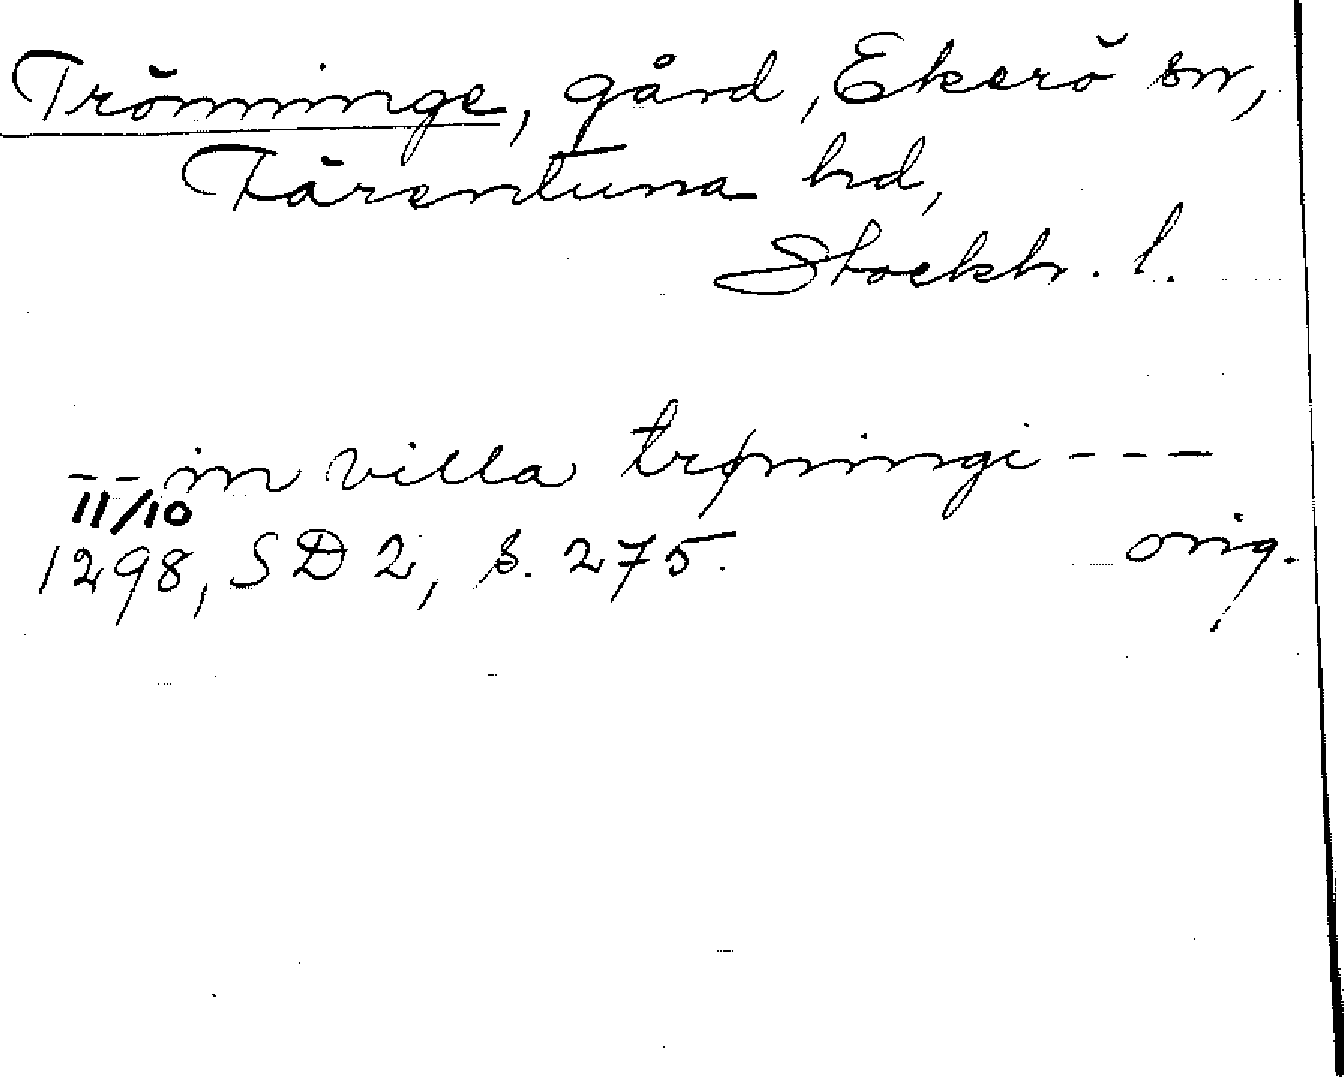 Trönninge, gård, Ekerö sn,
Färentuna hd,
Stockh. l.
-- in villa trøningi ---
11/10
1298, SD 2, s. 275. orig.